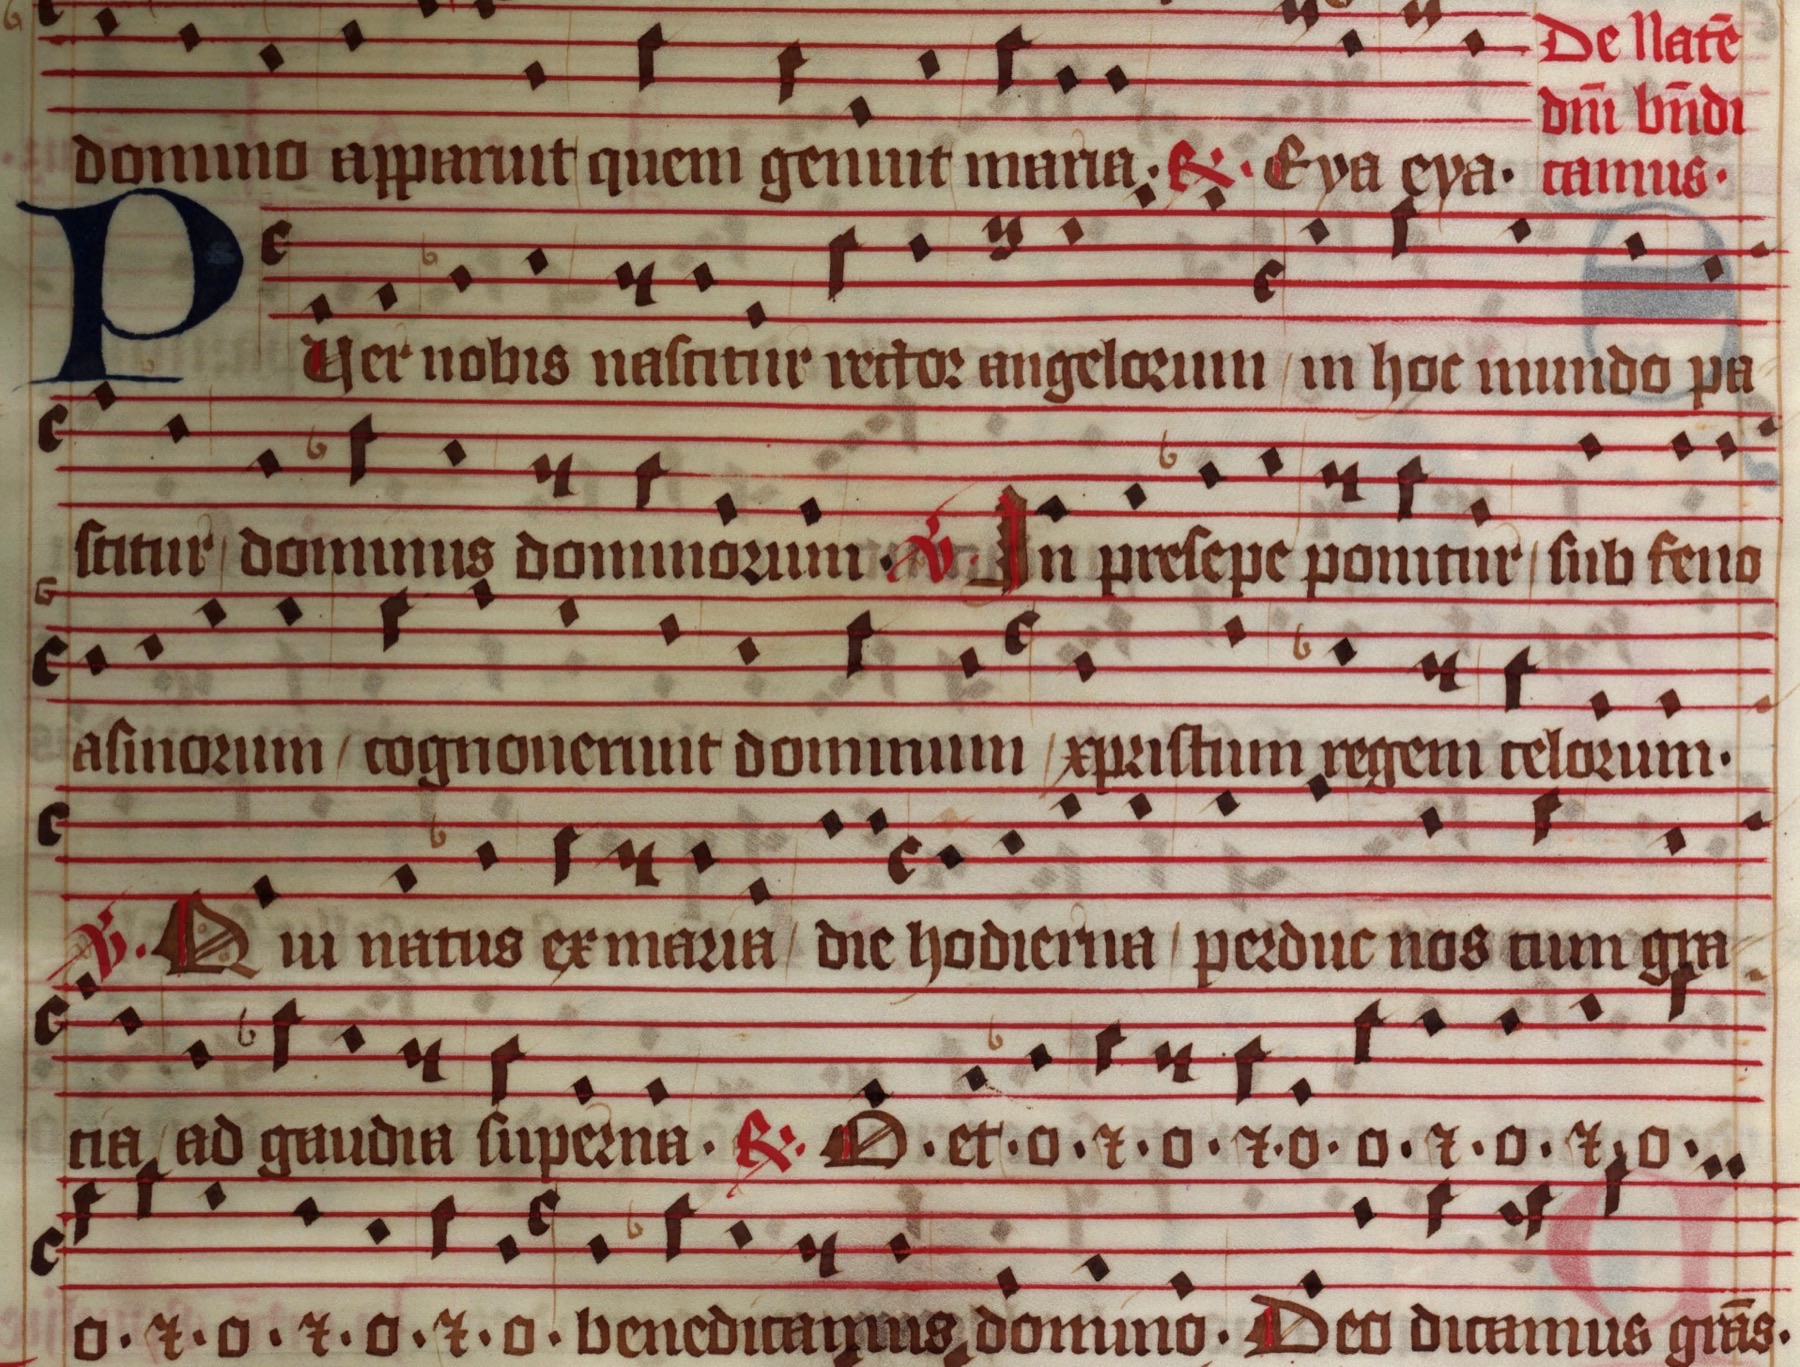 domino apparuit quem genuit maria. ℟. Eya eya.
De Natē
dnī bn̄di
camus.
PUer nobis nascitur rector angelorum / in hoc mundo pa
scitur / dominus dominorum. ℣. In presepe ponitur / sub feno
asinorum / cognouerunt dominum / xpristum regem celorum.
℣. Qui natus ex maria / die hodierna / perduc nos cum gra
cia / ad gaudia superna. ℟. O. et. o. ⁊. o. ⁊. o. o. ⁊. o. ⁊. o.
o. ⁊. o. ⁊. o. ⁊. o. benedicamus domino. Deo dicamus grās.